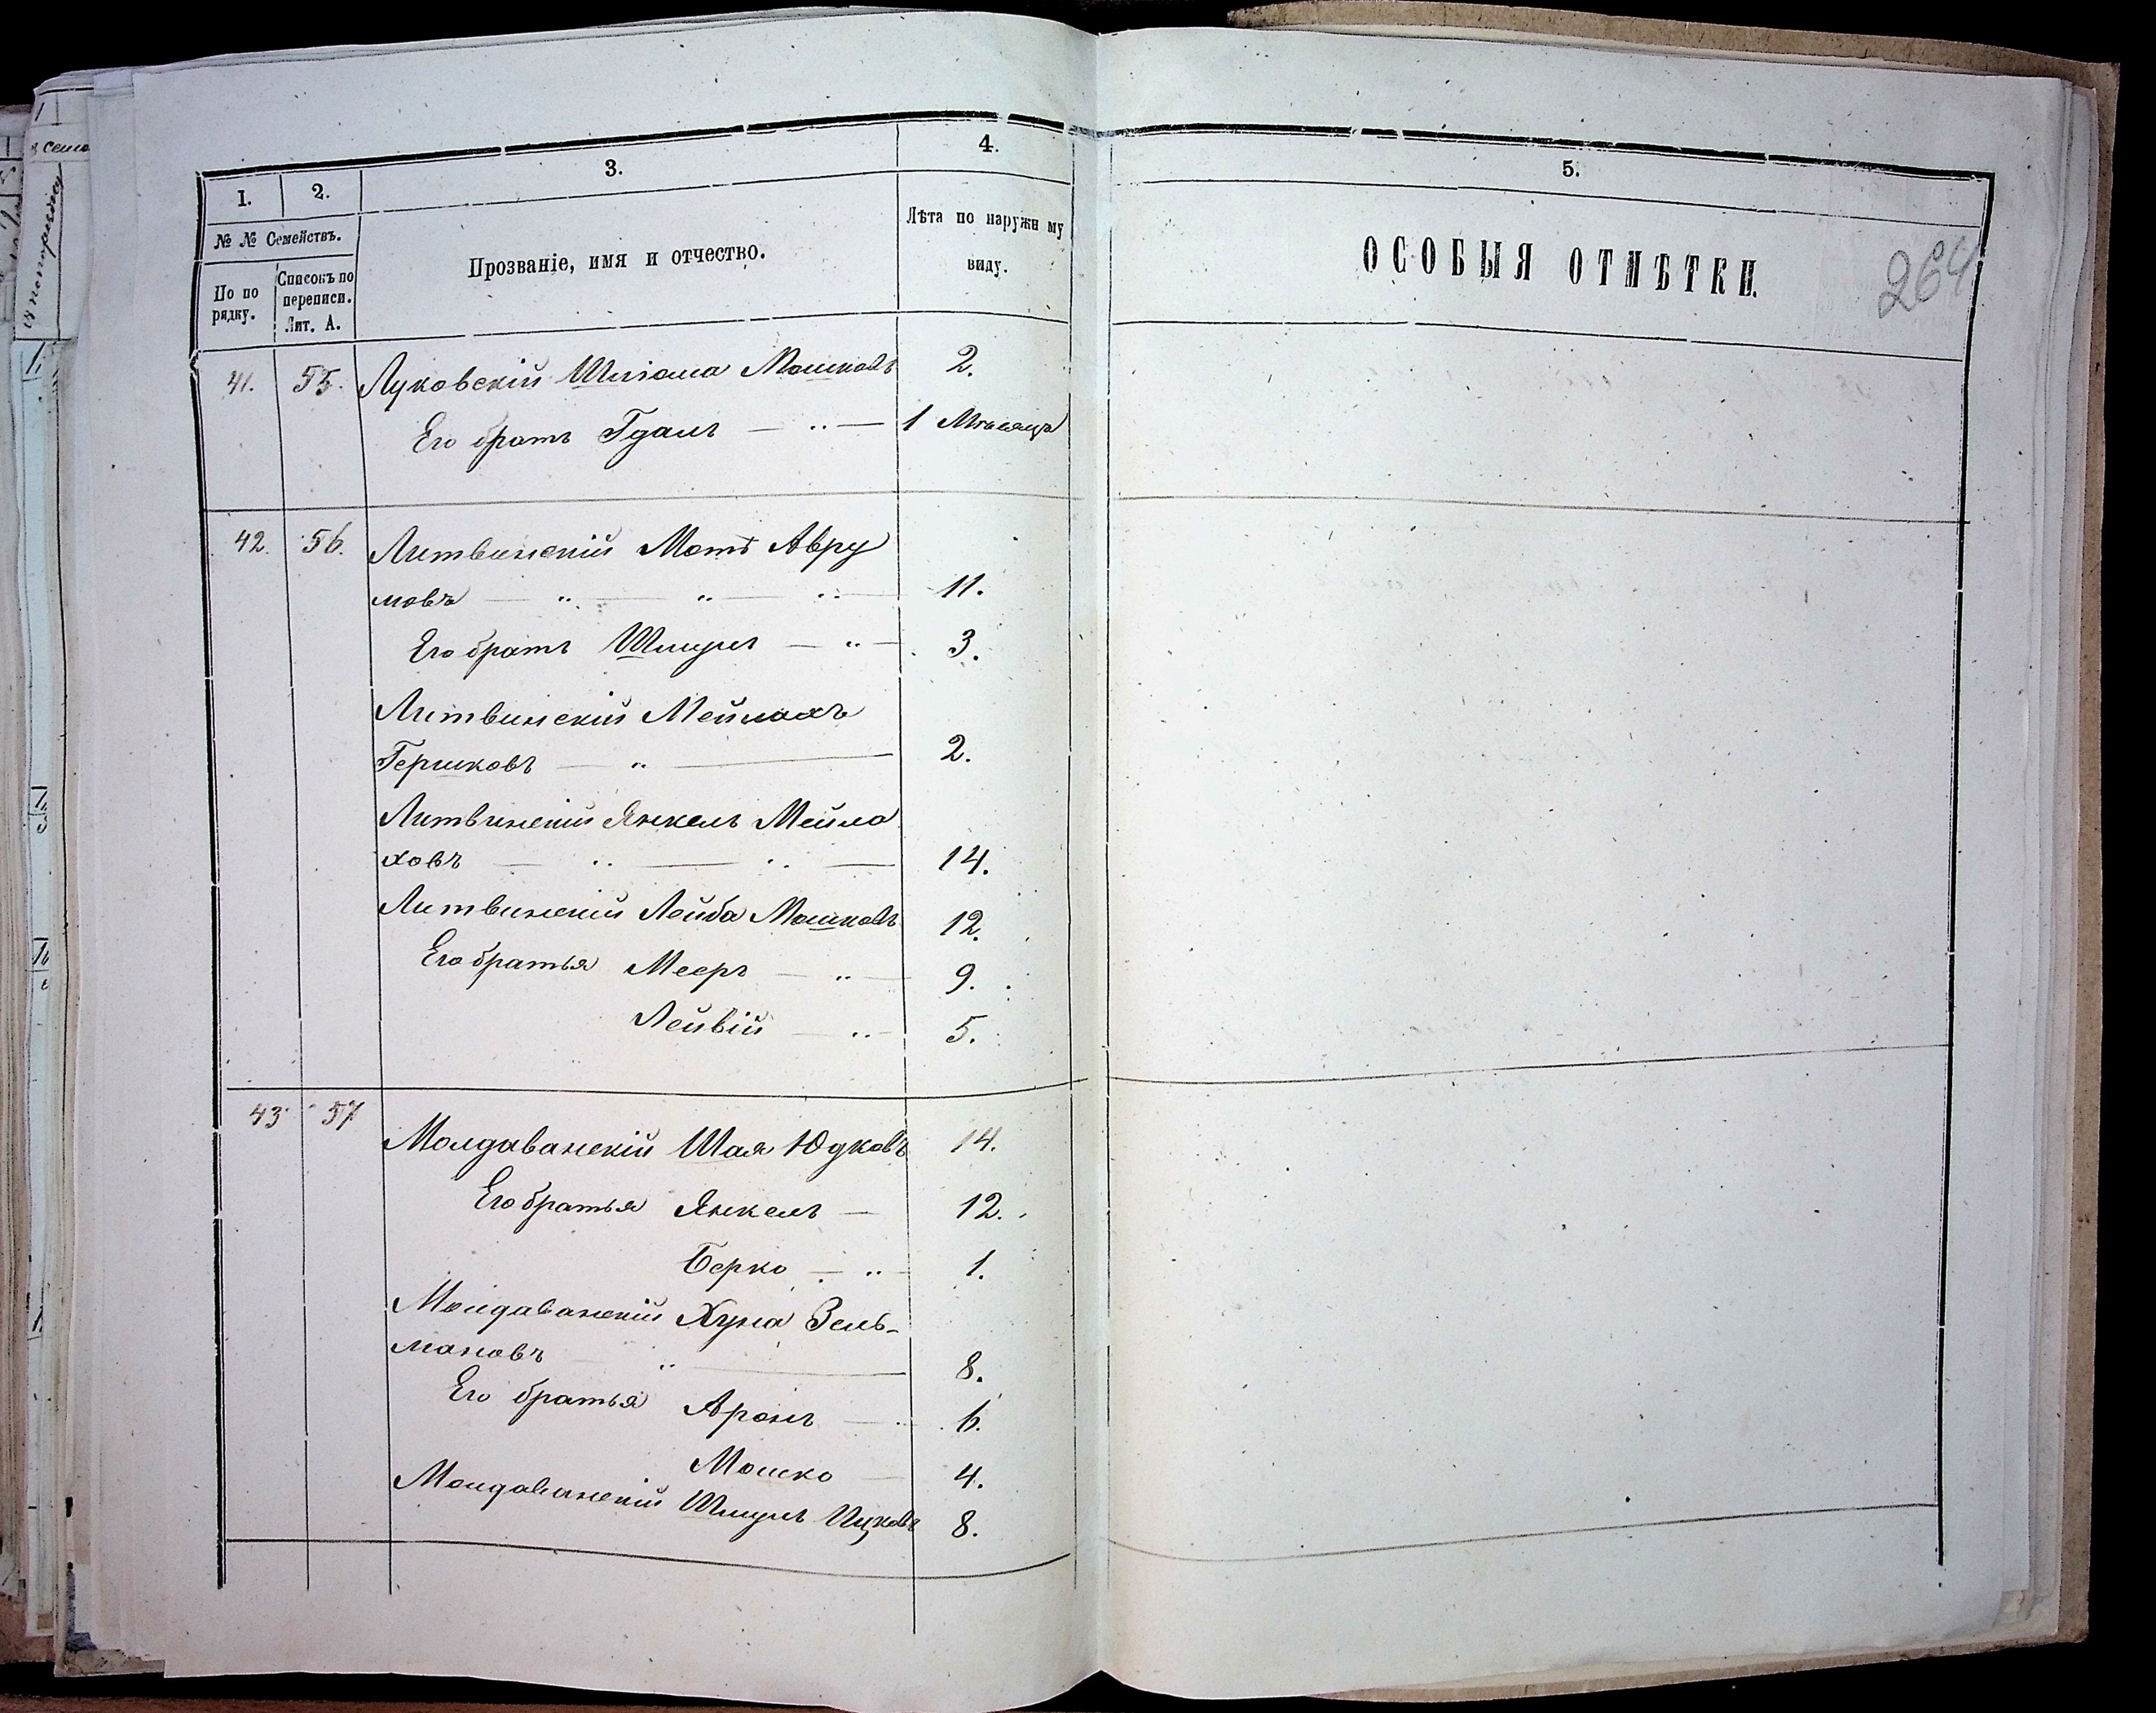 1.
2.
3.
4.
5.
№ № Семействъ.
По по
рядку.
Списокъ по
переписи.
Лит. А.
Прозваніе, имя и отчество.
Лѣта по наружн му
виду.
ОСОБЫЯ ОТМѢТКИ.
264
41. 55. Луковскій Шліома Мошковъ 2.
Его братъ Гдаль — „ — 1 Мѣсяца
42. 56. Литвинскій Мотѣ Авру
мовъ — „ — „ — „ — 11.
Его братъ Шмуль — „ — 3.
Литвинскій Мейлахъ
Гершковъ — „ — 2.
Литвинскій Янкель Мейла
ховъ — „ — „ — 14.
Литвинскій Лейба Мошковъ 12.
Его братья Мееръ — „ — 9.
Лейвій — „ — 5.
43 57 Молдаванскій Шая Юдковъ 14.
Его братья Янкель — 12.
Берко — „ — 1.
Молдаванскій Хуна Зель-
мановъ — „ — 8.
Его братья Аронъ — „ 6.
Мошко — 4.
Молдаванскій Шмуль Ицковъ 8.